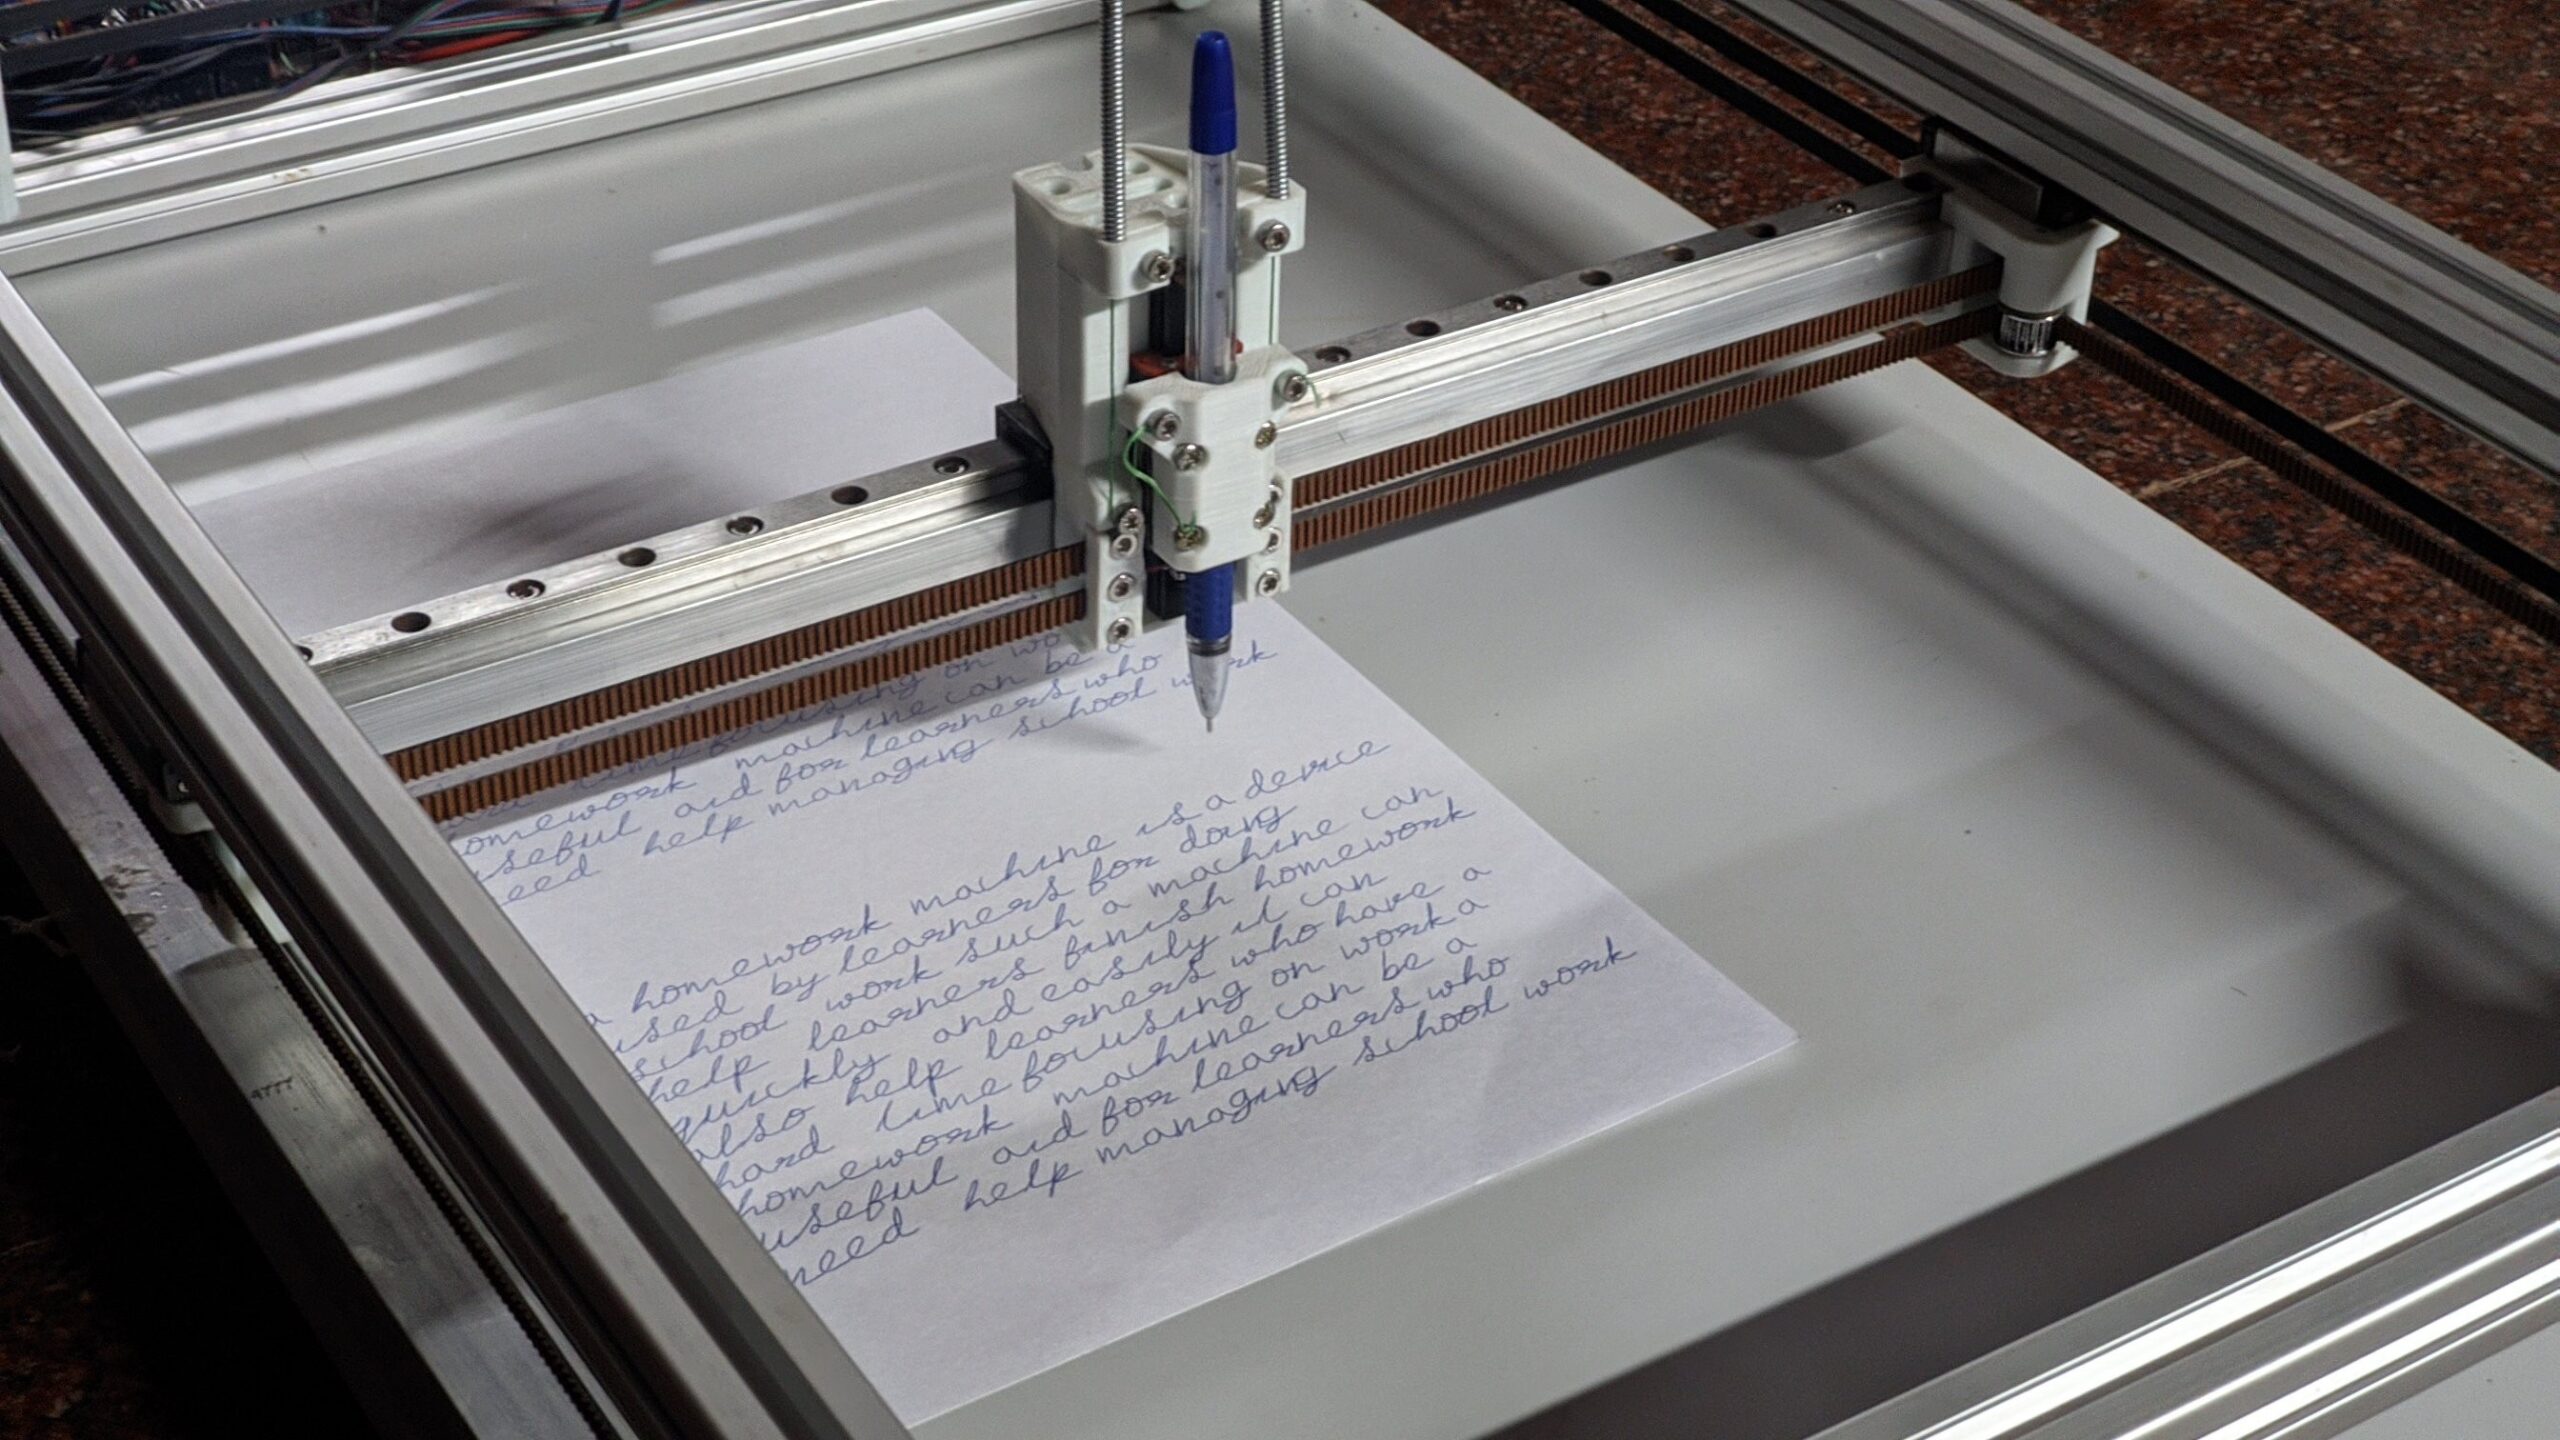 focusing on wo
homework machine can be a
useful aid for learners who
need help managing school work
a homework machine is a device
used by learners for doing
school work such a machine can
help learners finish homework
quickly and easily it can
also help learners who have a
hard time focusing on work a
homework machine can be a
useful aid for learners who
need help managing school work